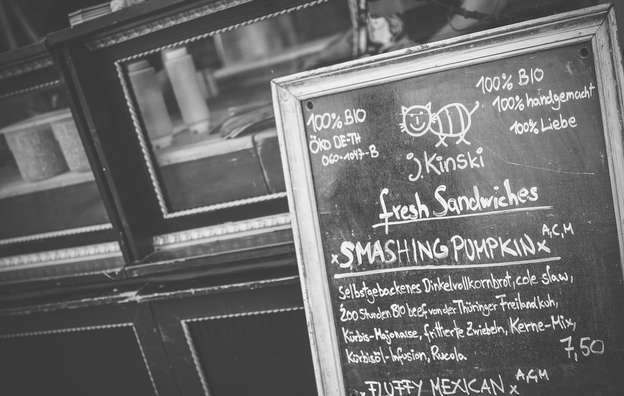 100% BIO
100% BIO
ÖKO DE-TH
100% handgemacht
060-1047-B
100% Liebe
J. Kinski
fresh Sandwiches
x SMASHING PUMPKIN x A,C,M
Selbstgebackenes Dinkelvollkornbrot, cole slaw,
200 Stunden BIO beef von der Thüringer Freilandkuh,
Kürbis-Majonaise, frittierte Zwiebeln, Kerne-Mix,
Kürbisöl-Infusion, Rucola
7,50
x FLUFFY MEXICAN x A,G,M